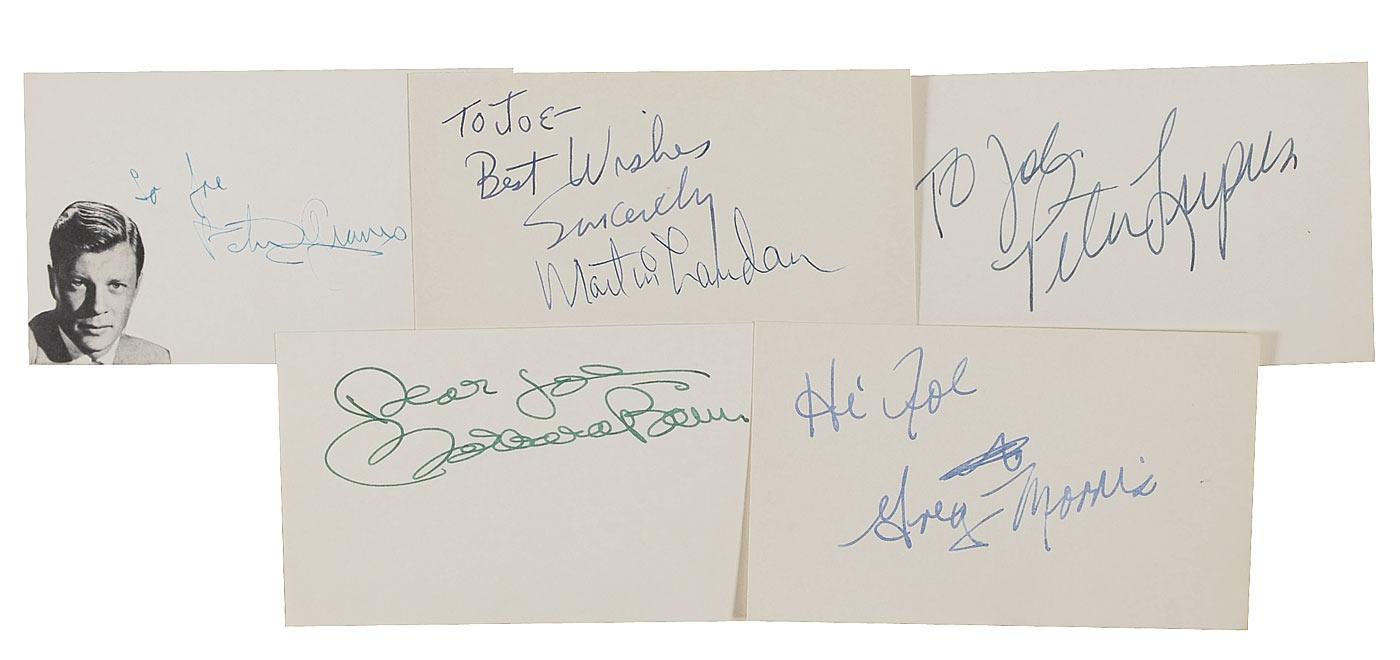 To Joe
Peter Graves
To Joe-
Best Wishes
Sincerely
Martin Landau
To Joe
Peter Lupus
Dear Joe
Barbara Bain
Hi Joe
Greg Morris